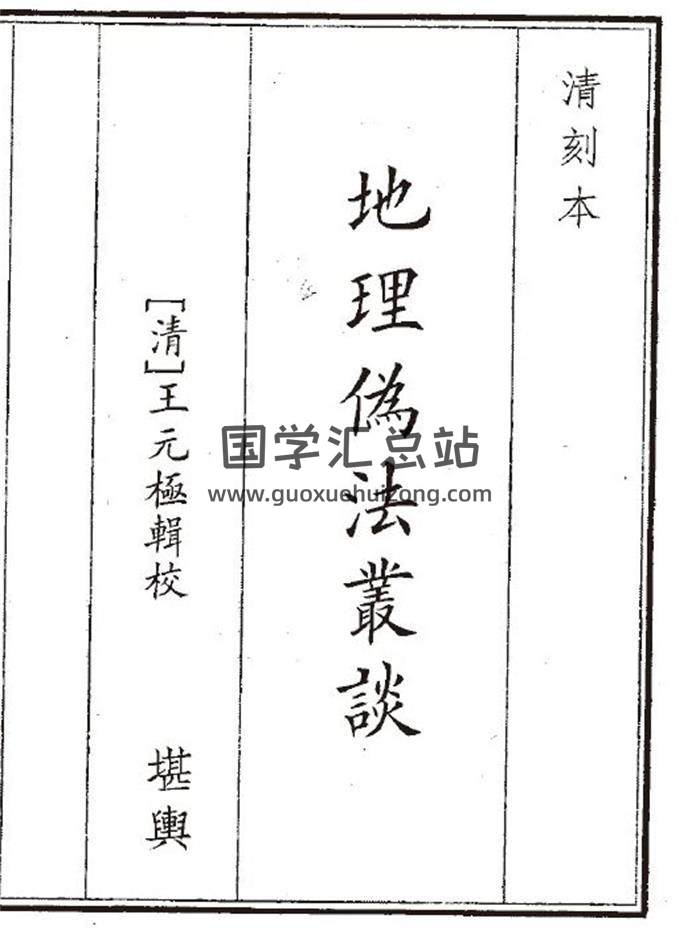 清刻本
地理偽法叢談
[清]王元極輯校
堪輿
国学汇总站
www.guoxuehuizong.com